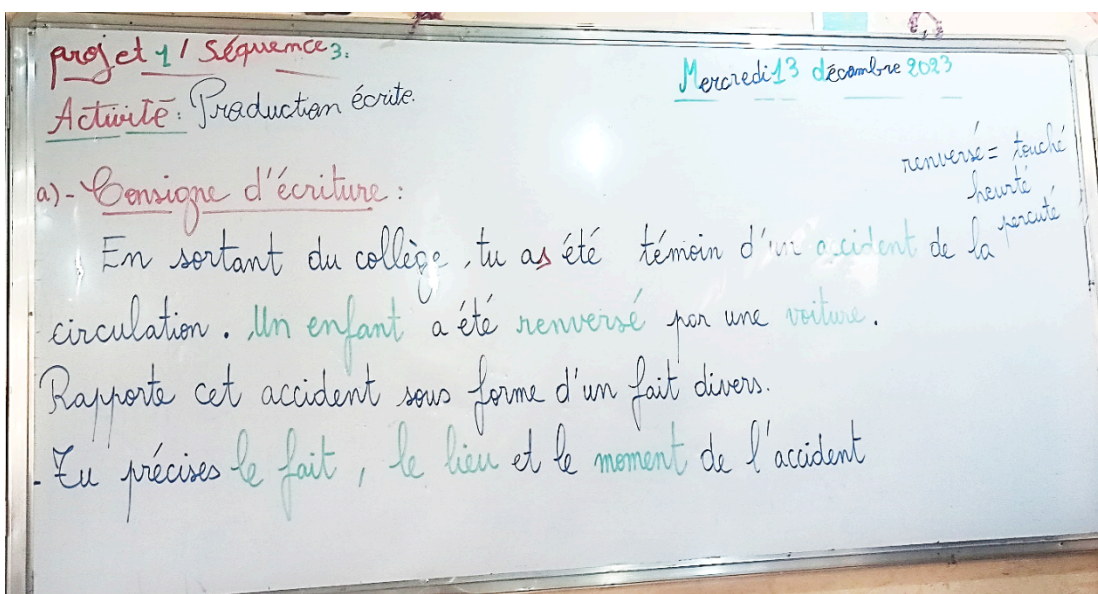 projet 1 / Séquence 3.
Mercredi 13 décembre 2023
Activité : Production écrite.
renversé = touché
heurté
percuté
a) - Consigne d'écriture :
En sortant du collège, tu as été témoin d'un accident de la
circulation. Un enfant a été renversé par une voiture.
Rapporte cet accident sous forme d'un fait divers.
- Tu précises le fait, le lieu et le moment de l'accident